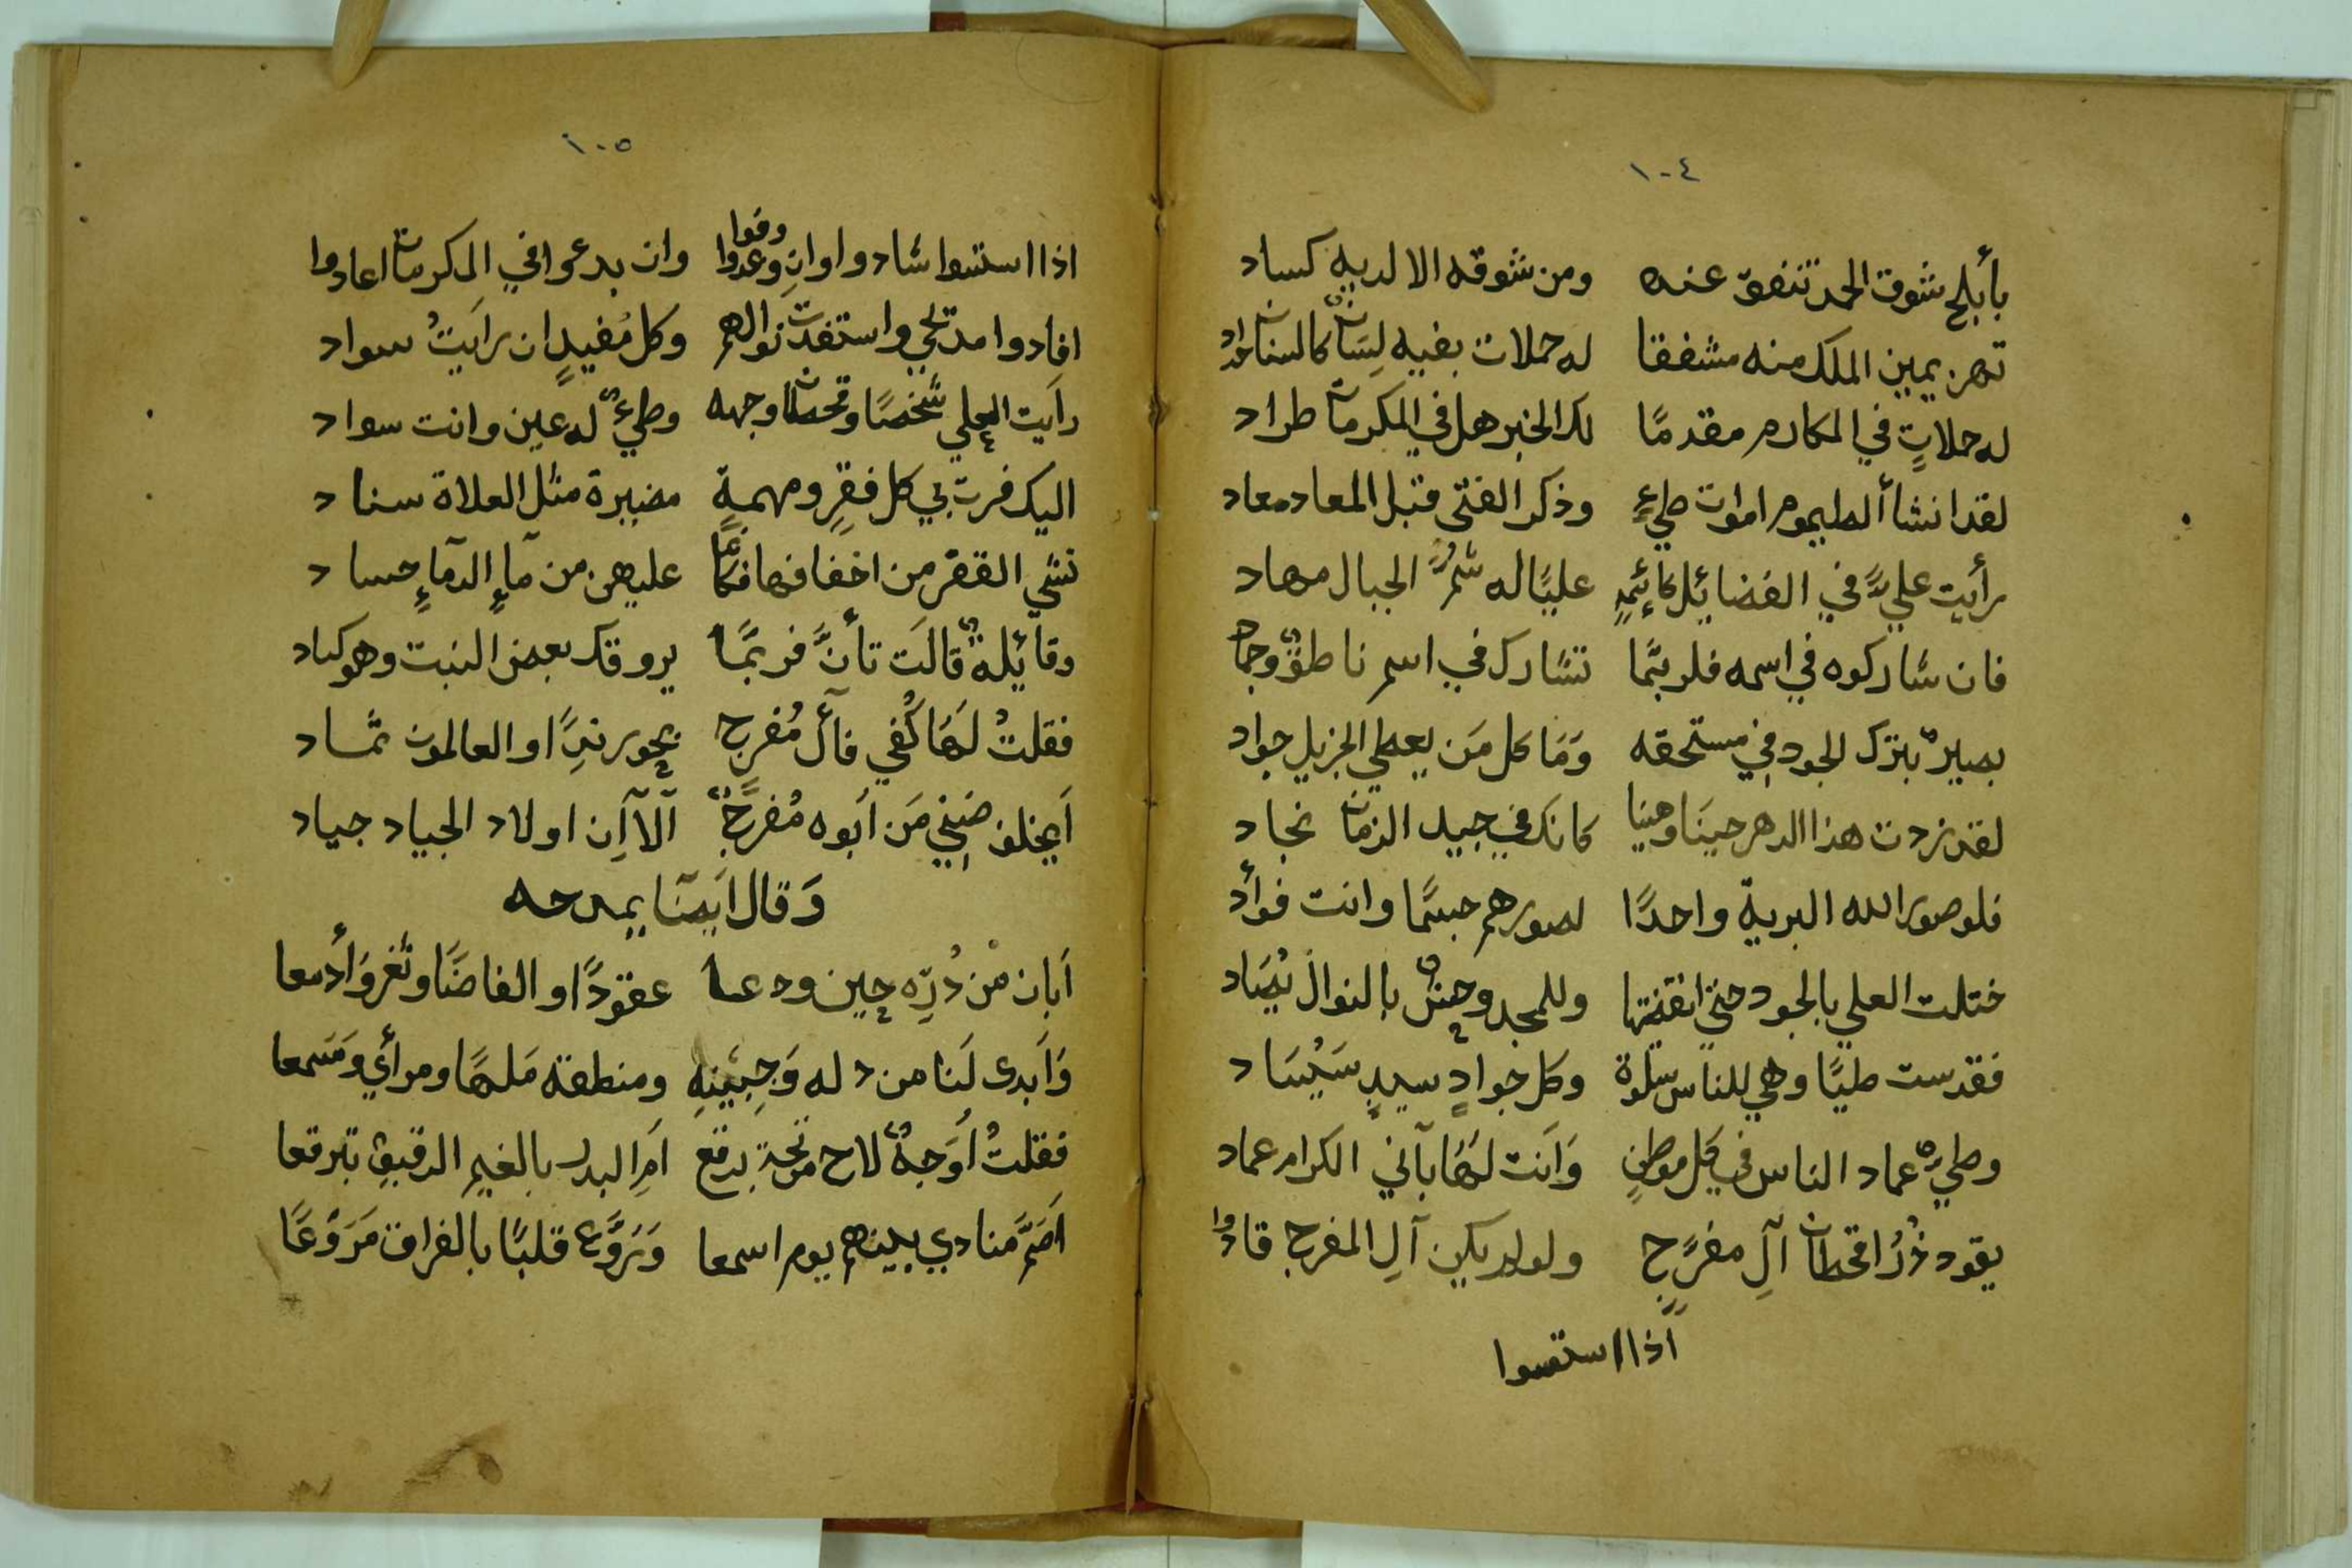 ١٠٤
بأبلج شوق الحمد تنفق عنه ومن شوقه الا لديه كساد
تهز يمين الملك منه مشففا له حملات بفيه لِسَان كالسنان
له حملاتٍ في المكارم مقدمًا لك الخير هل في المكرمات طراد
لقد انشأ الطيموم اموات طيءٍ وذكر الفتى قبل المعاد معاد
رأيت عليّ في الفضائل عليًا له شمُّ الجبال مهاد
فان شاركوه في اسمه فلربّما تشارك في اسم ناطقٌ وجماد
بصيرٌ بترك الجود في مستحقه وَمَا كل مَن يعطي الجزيل جواد
لقد زدت هذا الدهر حينَا وهنيا كانك في جيد الزمان نجاد
فلو صور الله البرية واحدًا لصورهم جسمًا وانت فوأد
ختلت العلي بالجود حتى اقتنصتها وللمجد وحشٌ بالنوال يُصَاد
فقدست طيًا وهي للناس سلوة وكل جوادٍ سيدٍ سَيُسَاد
وطيءٌ عماد الناس في كل موطنٍ وَاَنت لهَا بآني الكرام عماد
يقود ذُرُا قحطان آلِ مفرّجٍ ولو لم يكن آلِ المفرج قادوا
اذا استقسوا
١٠٥
اذا استسوا شادوا وانِ وعدوا وفوا وان بدعوا في المكرمات اعادوا
افادوا مدتحي واستفدت نوالهم وكل مُفيدٍ ان رايَتُ سواد
رايَت العلي شخصًا وقحطان وجهه وطيءٌ له عين وانت سواد
اليك فرت بي كل فقرٍ ومهمةٍ مضبرة مثل العلاة سناد
تشي القفر من اخفافها فكانما عليهن من مآءٍ الدمآءٍ جساد
وقائلةٌ قالَت تأنَّ فربمَّا يروقك بعض النبت وهو كباد
فقلتُ لهَا كُفي فآل مُفرجٍ بحور ندًِا والعالمون ثماد
اَيخلف ضنِي مَن اَبوه مُفرّجٌ آلا اِن اولاد الجياد جياد
وَقال اَيضًا يمدحه
اَبان مْن دُرِّه حين ودعا عقودًا والفاضَا وثغر وَأدمعا
وَاَبدى لَنا من دله وَجبِينهِ ومنطقه مَلهًا ومرأي وَمَسمعا
فقلتُ اُوَجهٌ لاح من تحت برقع اَمِ البدر بالغيم الرقيق تبرقعا
اَصَمَّ منادي بينهم يوم اسمعا وَرَوَّع قلبًا بالفراق مَرَوّعًا